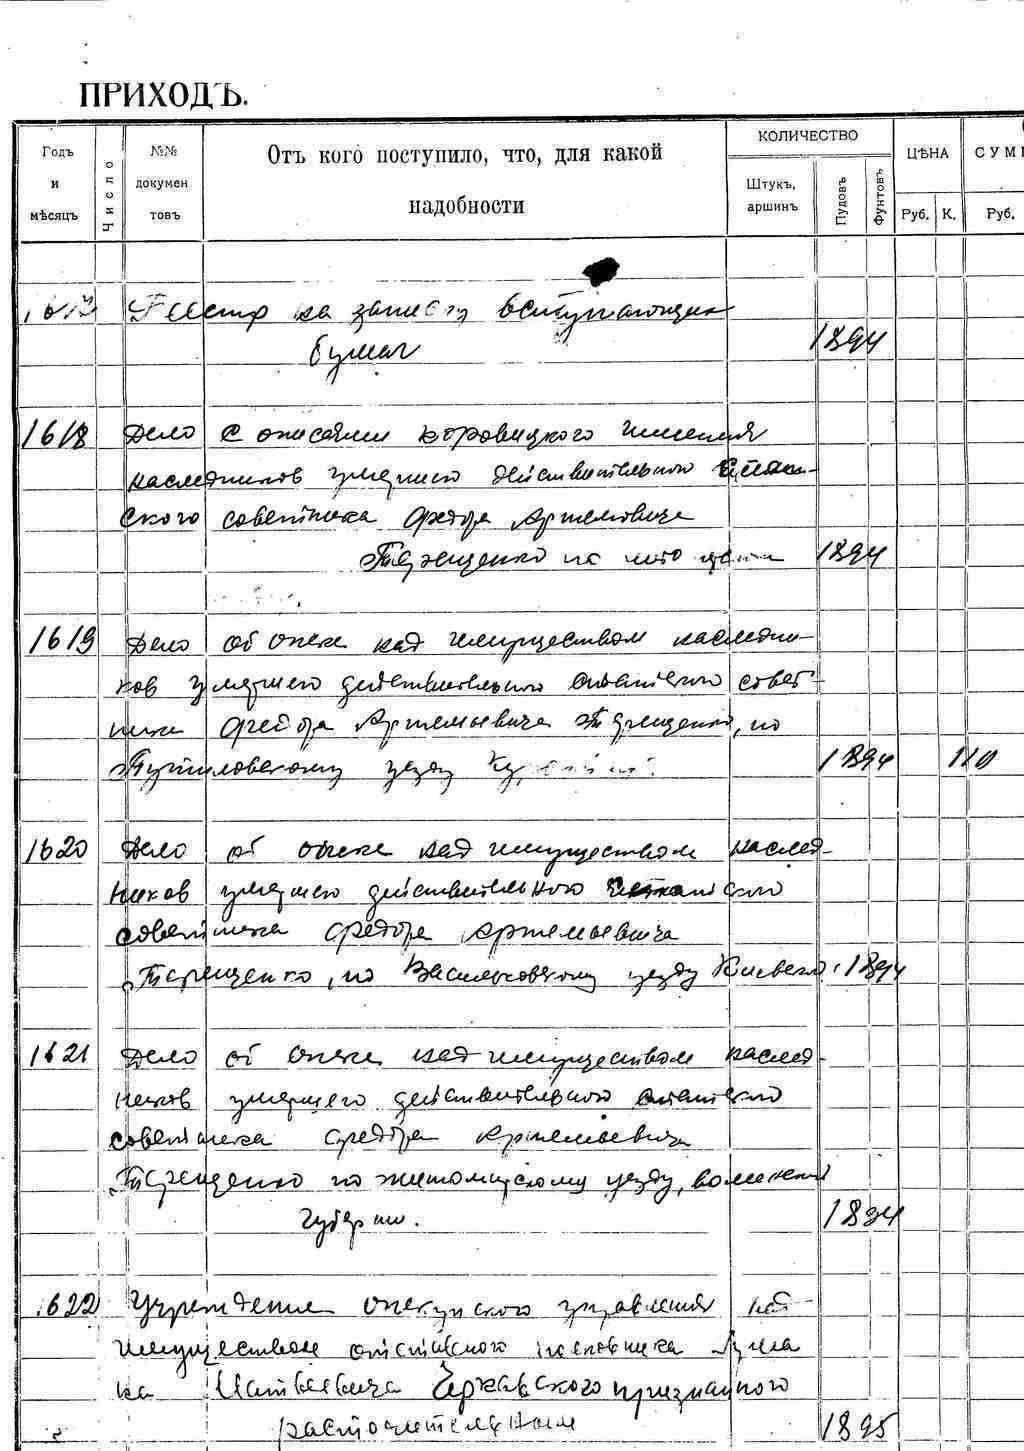 ПРИХОДЪ.
Годъ и мѣсяцъ
Число
№№ документовъ
Отъ кого поступило, что, для какой надобности
КОЛИЧЕСТВО
Штукъ, аршинъ
Пудовъ
Фунтовъ
ЦѢНА
Руб. К.
Руб.
1617 Реестр на запись вступающих
бумаг 1894
1618 Дело с описями имения
наследников умершего действительного
ского советника Федора Артемовича
Терещенко 1894
1619 Дело об опеке над имуществом наследни-
ков умершего действительного статского совет-
ника Федора Артемьевича Терещенко, по
Путивловскому уезду 1894 110
1620 Дело об опеке над имуществом наслед-
ников умершего действительного статского
советника Федора Артемьевича
Терещенко, по Васильковскому уезду Киевск. 1894
1621 Дело об опеке над имуществом наслед-
ников умершего действительного статского
советника Федора Артемьевича
Терещенко по житомирскому уезду, волынской
губернии. 1894
1622 Учреждение опекунского управления над
имуществом отставного полковника
Матвеевича признанного
расточительным 1895